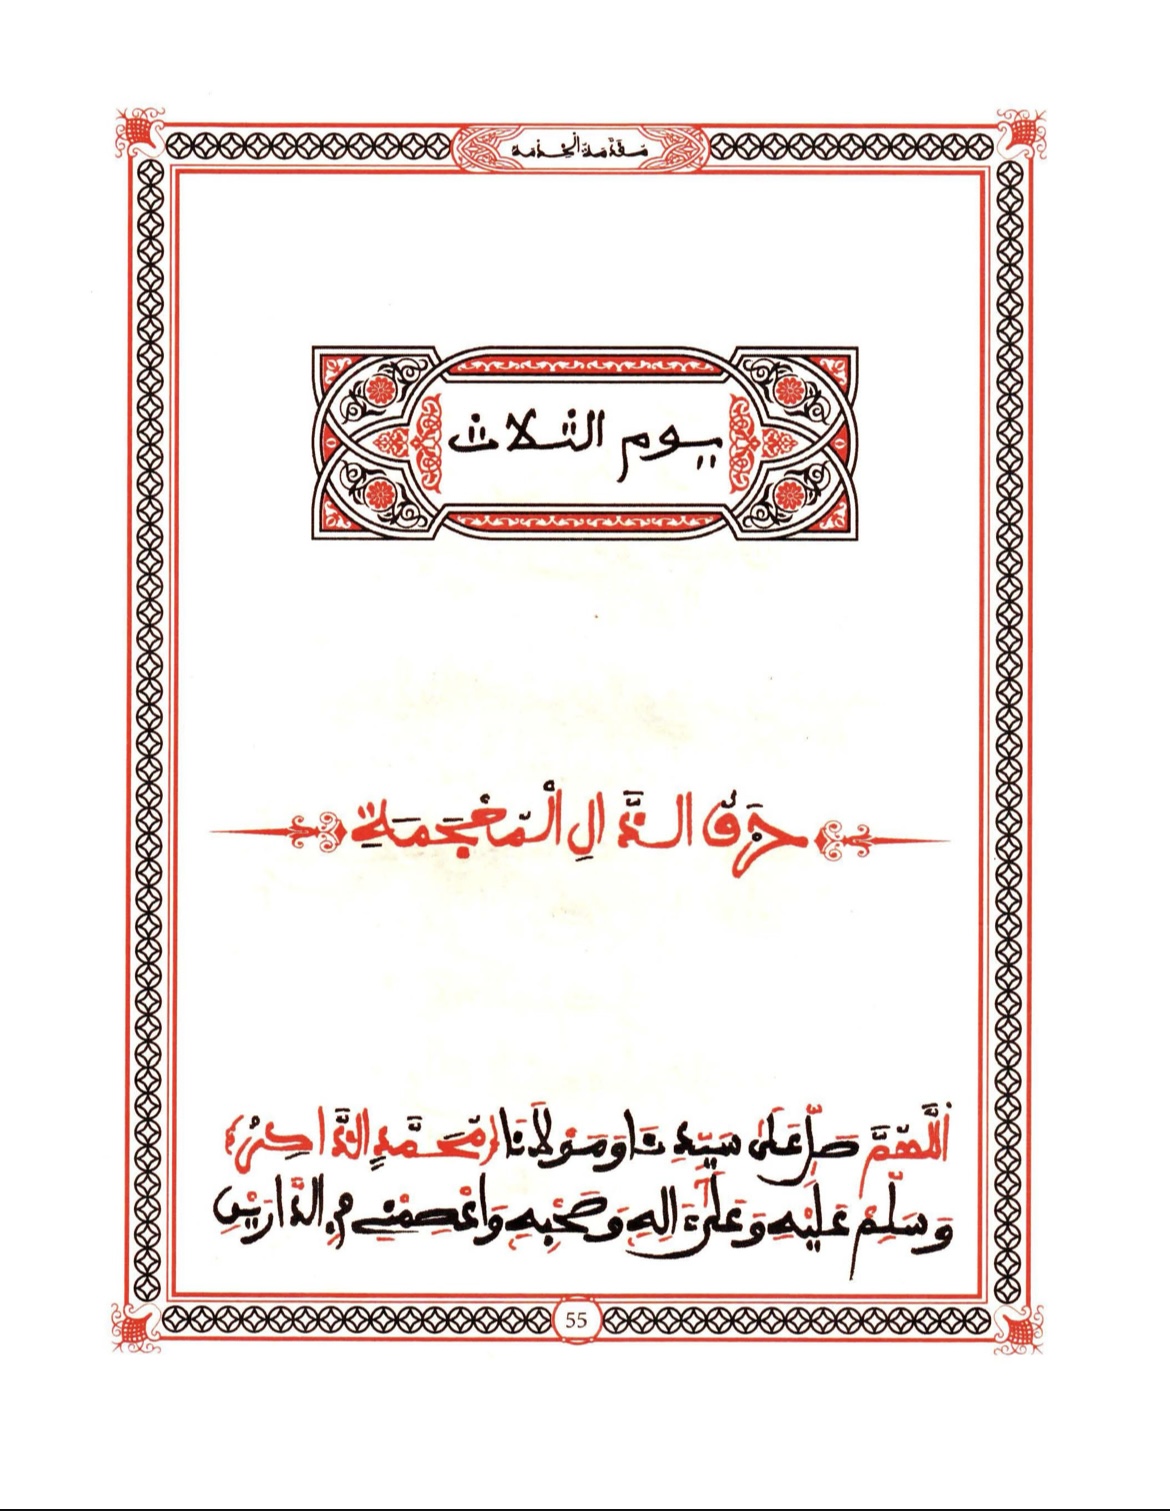 مُقَدِّمَةُ الْخِدْمَه
يوم الثلاث
حَرْفُ الذَّالِ الْمُعْجَمَةِ
اَللَّهُمَّ صَلِّ عَلَى سَيِّدِنَا وَمَوْلَانَا (مُحَمَّدٍ الذَّاكِرُ)
وَسَلِّمْ عَلَيْهِ وَعَلَىٰ ءَالِهِ وَصَحْبِهِ وَاعْصِمْنِي فِي الدَّارَيْنِ
55